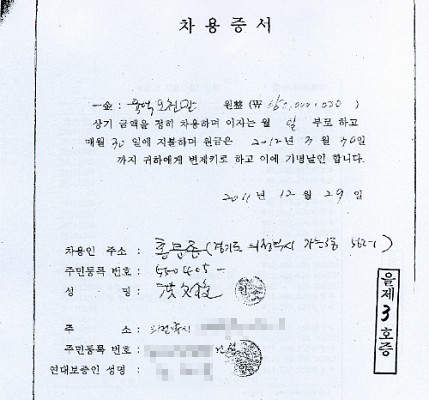 차용증서
一金 : 육억오천만 원整 (₩ 650,000,000 )
상기 금액을 정히 차용하며 이자는 월 일 부로 하고
매월 30 일에 지불하며 원금은 2012년 3 월 30일
까지 귀하에게 변제키로 하고 이에 기명날인 합니다.
2011 년 12 월 29 일
차용인 주소 : 홍문종 (경기도 의정부시 가능3동 562-1 )
주민등록 번호 : 550405 -
성 명 : 洪文鐘
주 소 : 의정부시
주민등록 번호 :
연대보증인 성명 :
을제 3 호증